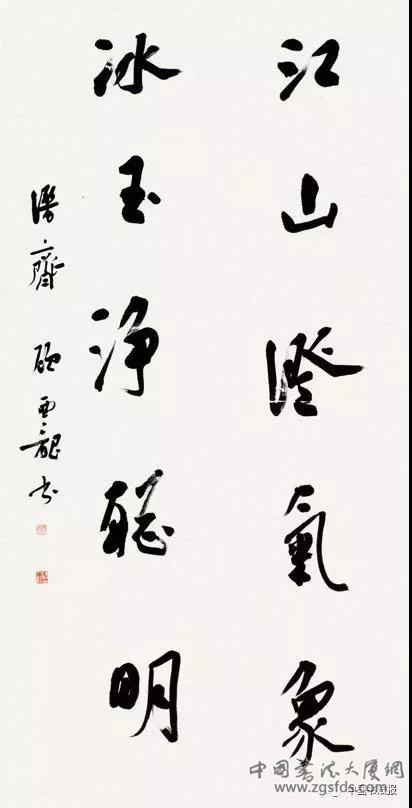 江山澄氣象
冰玉淨聰明
潛齋 顧亞龍書
中國書法大廈網
www.zgsfds.com